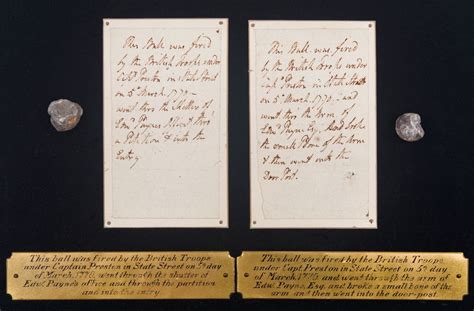 This Ball was fired
by the British troops under
Cap Preston in State Street
on 5 March 1770 –
went thro the Shutter of
Edw Paynes Office & thro
a Partition & into the
Entry
This Ball was fired
by the British troops under
Capt Preston in State Street
on 5 March, 1770, and
went thro the Arm of
Edw Payne Esq. and broke
the small bone of the Arm
& then went into the
Door Post.
This ball was fired by the British Troops
under Captain Preston in State Street on 5th day
of March, 1770, went through the shutter of
Edw. Payne's office and through the partition
and into the entry.
This ball was fired by the British Troops,
under Capt. Preston in State Street on 5th day of
March, 1770, and went through the arm of
Edw. Payne, Esq. and broke a small bone of the
arm and then went into the door-post.